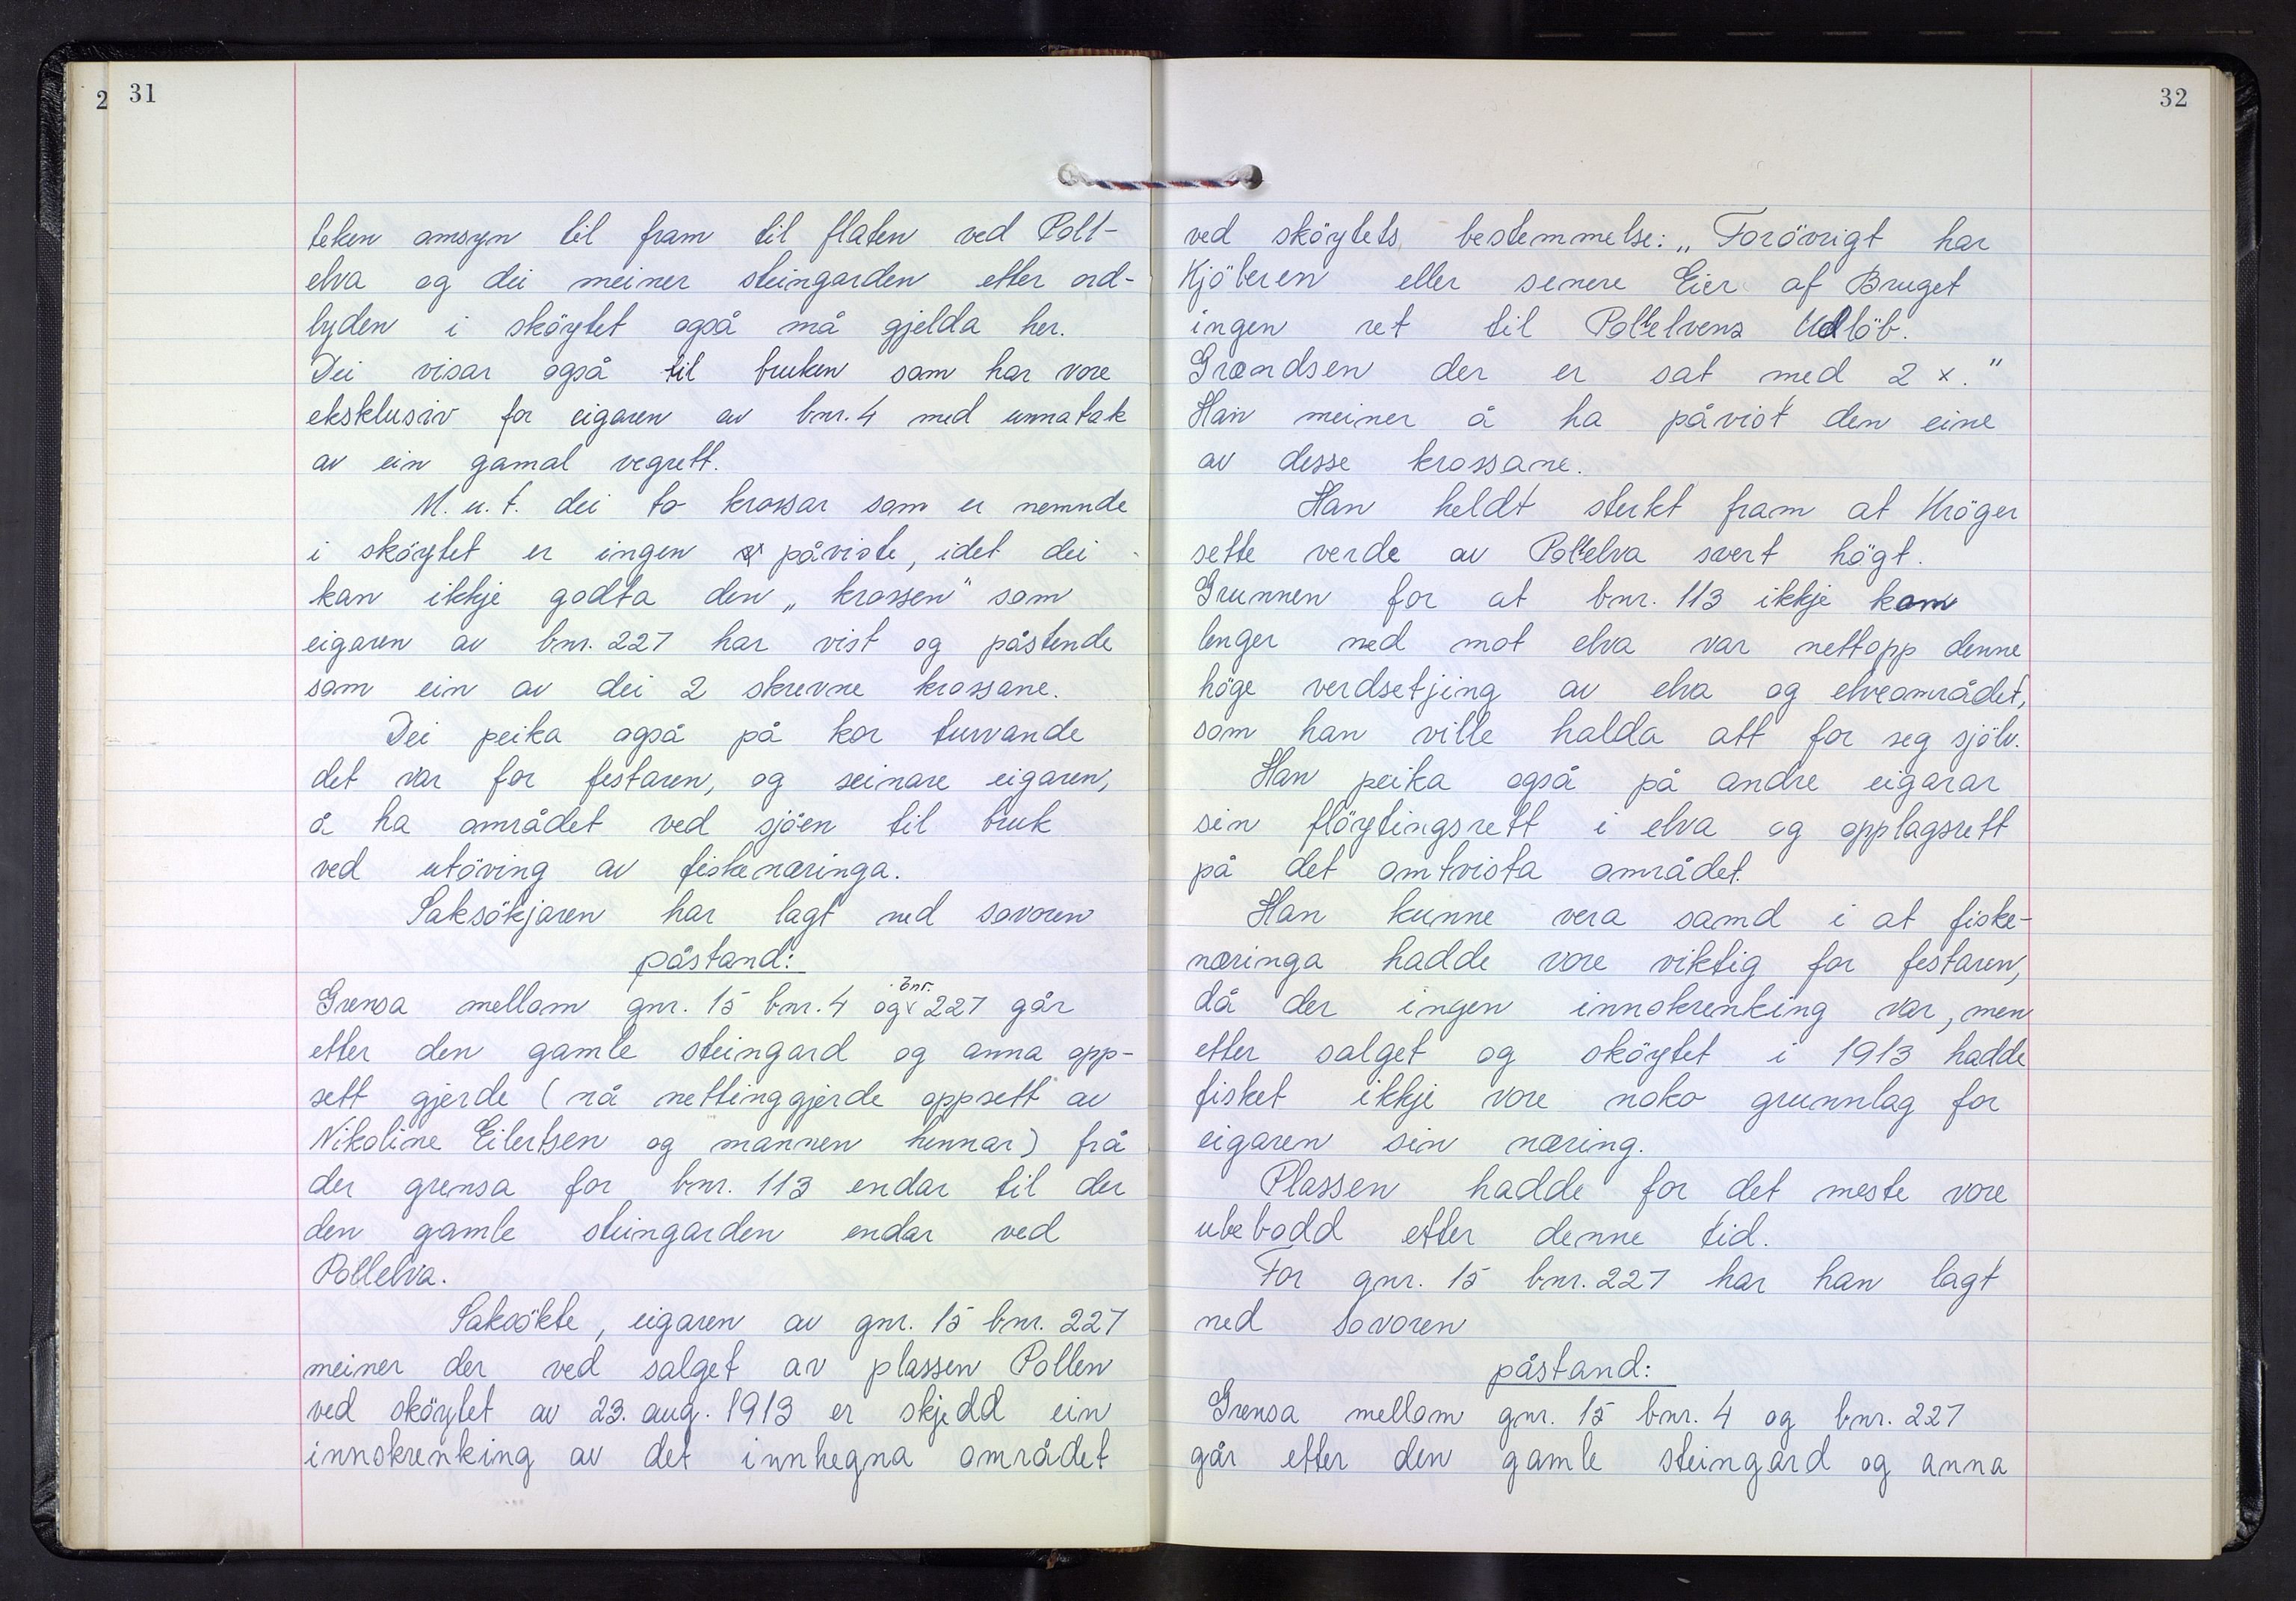 2 31
teken omsyn til fram til flaten ved Poll-
elva og dei meiner steingarden etter ord-
lyden i sköytet også må gjelda her.
Dei visar også til bruken som har vore
eksklusiv for eigaren av bnr. 4 med unnatak
av ein gamal vegrett.
M.u.t. dei to krossar som er nemnde
i sköytet er ingen påviste, idet dei
kan ikkje godta den „krossen" som
eigaren av bnr. 227 har vist og påstende
som ein av dei 2 skrevne krossane.
Dei peika også på kor turvande
det var for festaren, og seinare eigaren,
å ha området ved sjöen til bruk
ved utöving av fiskenæringa.
Saksökjaren har lagt ned sovoren
påstand:
Grensa mellom gnr. 15 bnr. 4 og bnr. 227 går
etter den gamle steingard og anna opp-
sett gjerde (nå nettinggjerde oppsett av
Nikoline Eilertsen og mannen hennar) frå
der grensa for bnr. 113 endar til der
den gamle steingarden endar ved
Pollelva.
Saksökte, eigaren av gnr. 15 bnr. 227
meiner der ved salget av plassen Pollen
ved sköytet av 23. aug. 1913 er skjedd ein
innskrenking av det innhegna området
32
ved sköytets bestemmelse: „Forövrigt har
Kjöberen eller senere Eier af Bruget
ingen ret til Pollelvens Udlöb.
Grændsen der er sat med 2 x."
Han meiner å ha påvist den eine
av desse krossane.
Han heldt sterkt fram at Kröger
sette verde av Pollelva svært högt.
Grunnen for at bnr. 113 ikkje kom
lenger ned mot elva var nettopp denne
höge verdsetjing av elva og elveområdet,
som han ville halda att for seg sjölv.
Han peika også på andre eigarar
sin flöytingsrett i elva og opplagsrett
på det omtvista området.
Han kunne vera samd i at fiske-
næringa hadde vore viktig for festaren,
då der ingen innskrenking var, men
etter salget og sköytet i 1913 hadde
fisket ikkje vore noko grunnlag for
eigaren sin næring.
Plassen hadde for det meste vore
ubebodd etter denne tid.
For gnr. 15 bnr. 227 har han lagt
ned sovoren
påstand:
Grensa mellom gnr. 15 bnr. 4 og bnr. 227
går etter den gamle steingard og anna